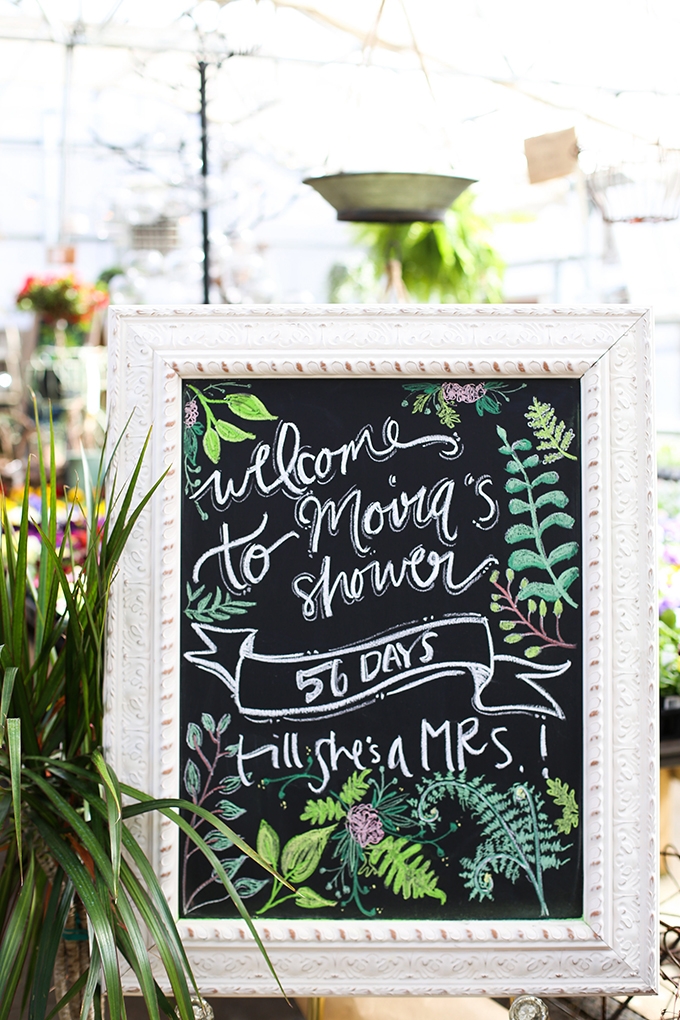 welcome
to Moira's
shower
56 DAYS
till she's a MRS.!